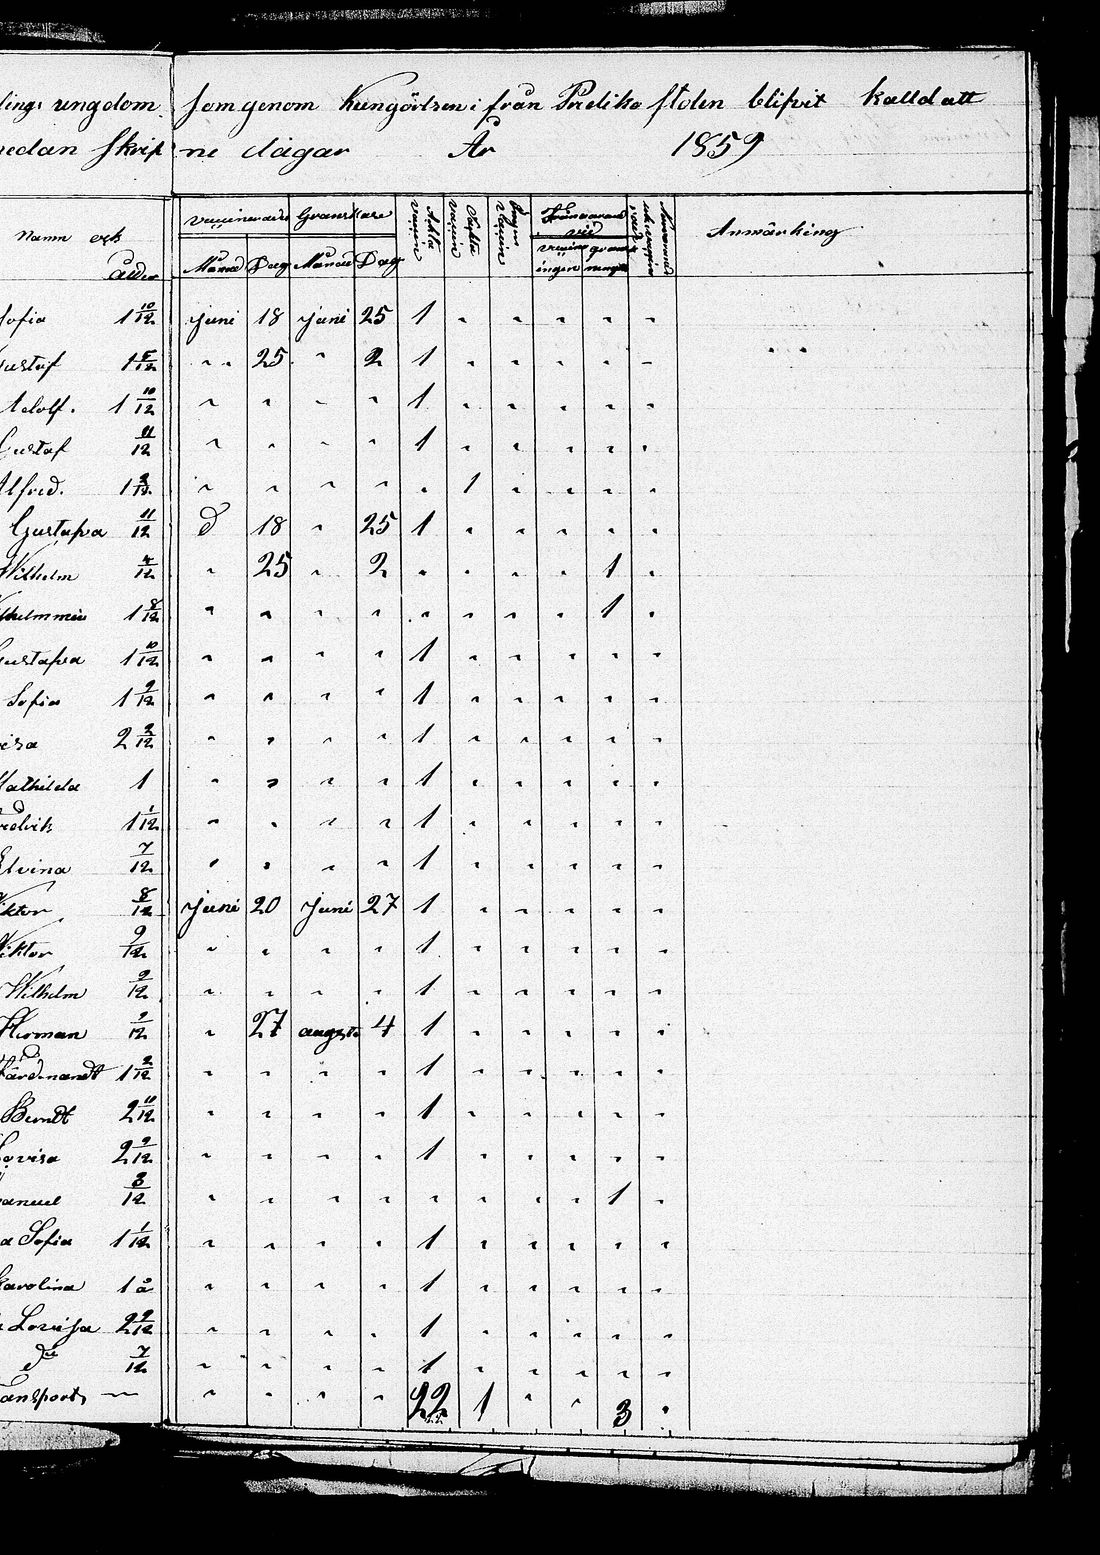 lings ungdom som genom Kungörelsen i från Predikostolen blifvit kallad att
nedan skrif ne dagar År 1859
Namn och ålder
vaccinerades Granskades
Månad Dag Månad Dag
Äkta vaccin
Oäkta vaccin
Ingen vaccin
Frånvarande vid
vaccineringen granskningen
Anmärkning
Sofia 1 10/12 Juni 18 Juni 25 1 " " " " "
Gustaf 1 5/12 " 25 " 2 1 " " " " "
Adolf. 1 10/12 " " " " 1 " " " " "
Gustaf 11/12 " " " " 1 " " " " "
Alfred. " " " " " 1 " " " "
Gustafva 11/12 d 18 " 25 1 " " " " "
Wilhelm 4/12 " 25 " 2 " " " " 1 "
1 8/12 " " " " " " " " 1 "
Gustafva 1 10/12 " " " " 1 " " " " "
Sofia 1 9/12 " " " " 1 " " " " "
isa 2 2/12 " " " " 1 " " " " "
Mathilda 1 " " " " 1 " " " " "
redrik 1 1/12 " " " " 1 " " " " "
Elvina 7/12 " " " " 1 " " " " "
Viktor 8/12 Juni 20 Juni 27 1 " " " " "
Viktor 9/12 " " " " 1 " " " " "
Wilhelm 9/12 " " " " 1 " " " " "
Herman 9/12 " 27 augsti 4 1 " " " " "
Färdinandt 1 2/12 " " " " 1 " " " " "
Berndt 2 11/12 " " " " 1 " " " " "
Lovisa 2 9/12 " " " " 1 " " " " "
anuel 3/12 " " " " " " " " 1 "
a Sofia 1 1/12 " " " " 1 " " " " "
Karolina 1 å " " " " 1 " " " " "
Lovisa 2 9/12 " " " " 1 " " " " "
7/12 " " " " 1 " " " " "
ansport, — " " " " 22 1 " " 3 "